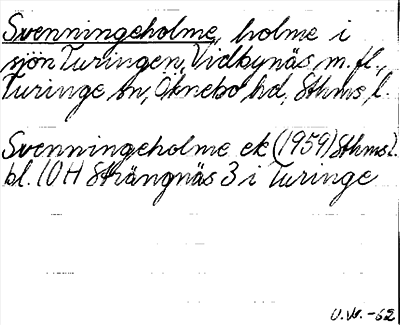 Svenningeholme, holme i
sjön Turingen, Vidbynäs m.fl.,
Turinge sn, Öknebo hd, Sthms l.
Svenningeholme ek (1959) Sthms l.
bl. 10H Strängnäs 3 i Turinge
U.W. -62